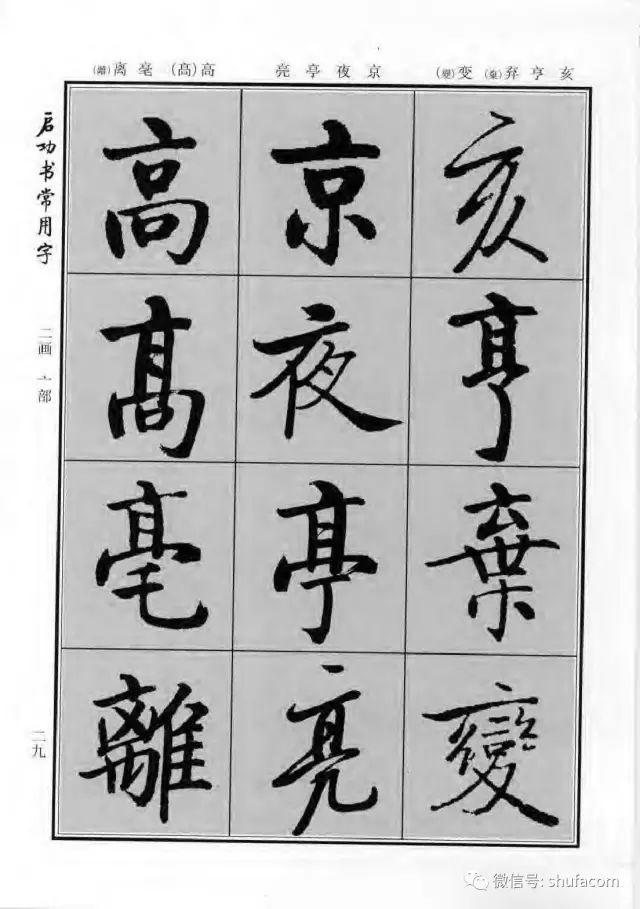 亥亨弃(棄)变(變)
京夜亭亮
高(髙)毫离(離)
启功书常用字
二画 亠部
二九
亥
亨
棄
變
京
夜
亭
亮
高
髙
毫
離
微信号: shufacom